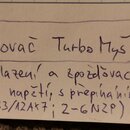 ovač Turbo Myš
lazení a zpožďovac
napětí s přepínání
83/12AX7; 2-6N2P)